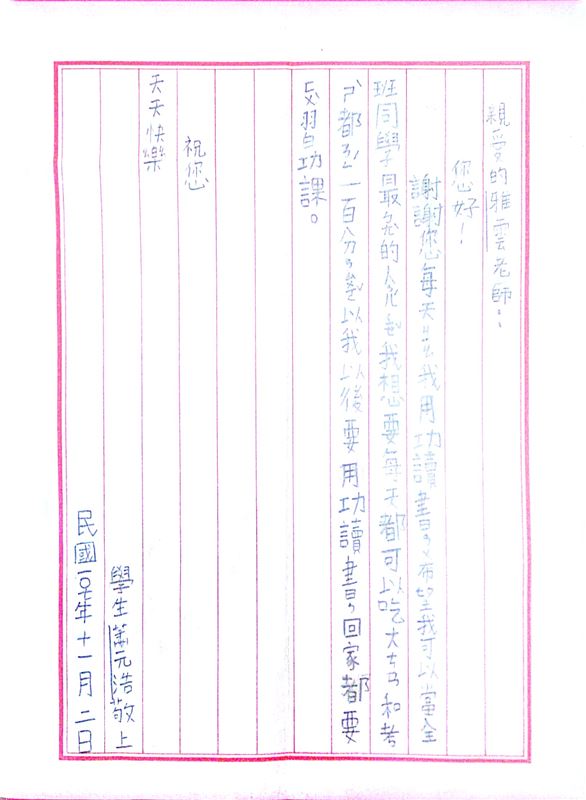 親愛的雅雲老師：
您好！
謝謝您每天ㄐㄧㄠ我用功讀書，希望我可以當全
班同學最ㄤ的人，我想要每天都可以吃大ㄘㄢ和考
ㄕˋ都ㄎㄠˇ一百分，所以我以後要用功讀書，回家都要
ㄈㄨˋ習功課。
祝您
天天快樂
學生蕭元浩敬上
民國一○七年十一月二日